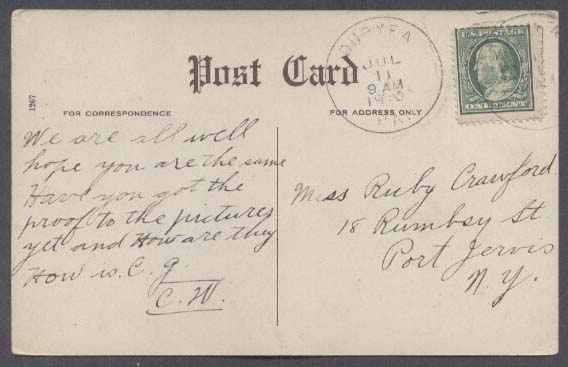 DURYEA
JUL
11
9 AM
PA.
U.S. POSTAGE
ONE CENT
Post Card
1267
FOR CORRESPONDENCE
FOR ADDRESS ONLY
We are all well
hope you are the same
Have you got the
proof to the pictures
yet and How are they
How is C. G.
C.W.
Miss Ruby Crawford
18 Rumbsy St.
Port Jervis
N.Y.